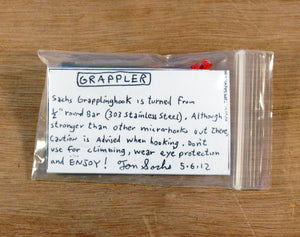 GRAPPLER
Sachs Grapplinghook is turned from
½" round Bar (303 Stainless Steel), Although
stronger than other micro-hooks out there,
Caution is Advised when hooking. Don't
use for climbing, wear eye protection
and ENJOY! Tom Sachs 5.6.12